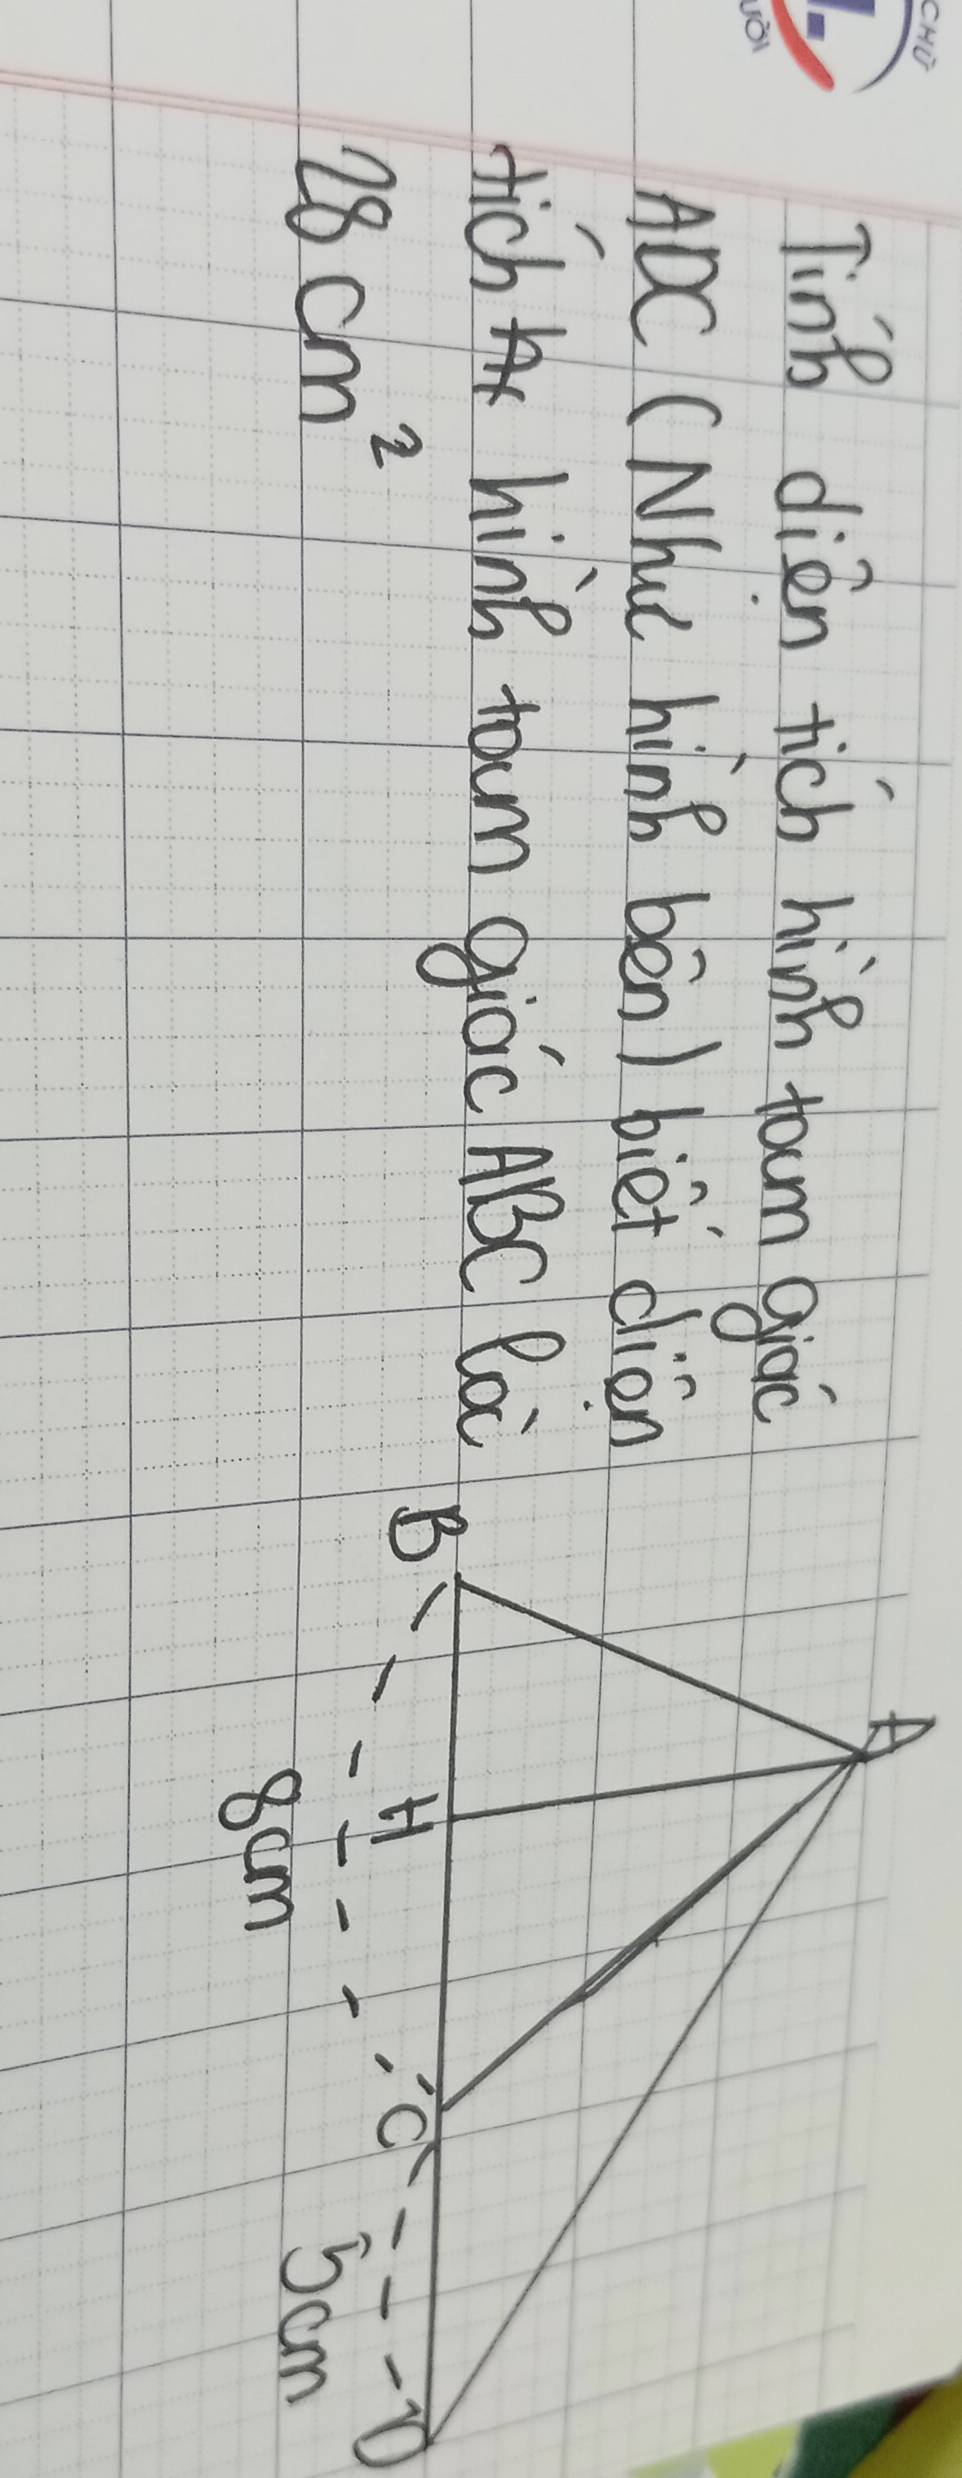 CHỮ
ƯỜI
Tính diện tích hình tam giác
ADC (Như hình bên) biết diện
tích hình tam giác ABC là
28 cm²
A
B
H
C
D
8cm
5cm